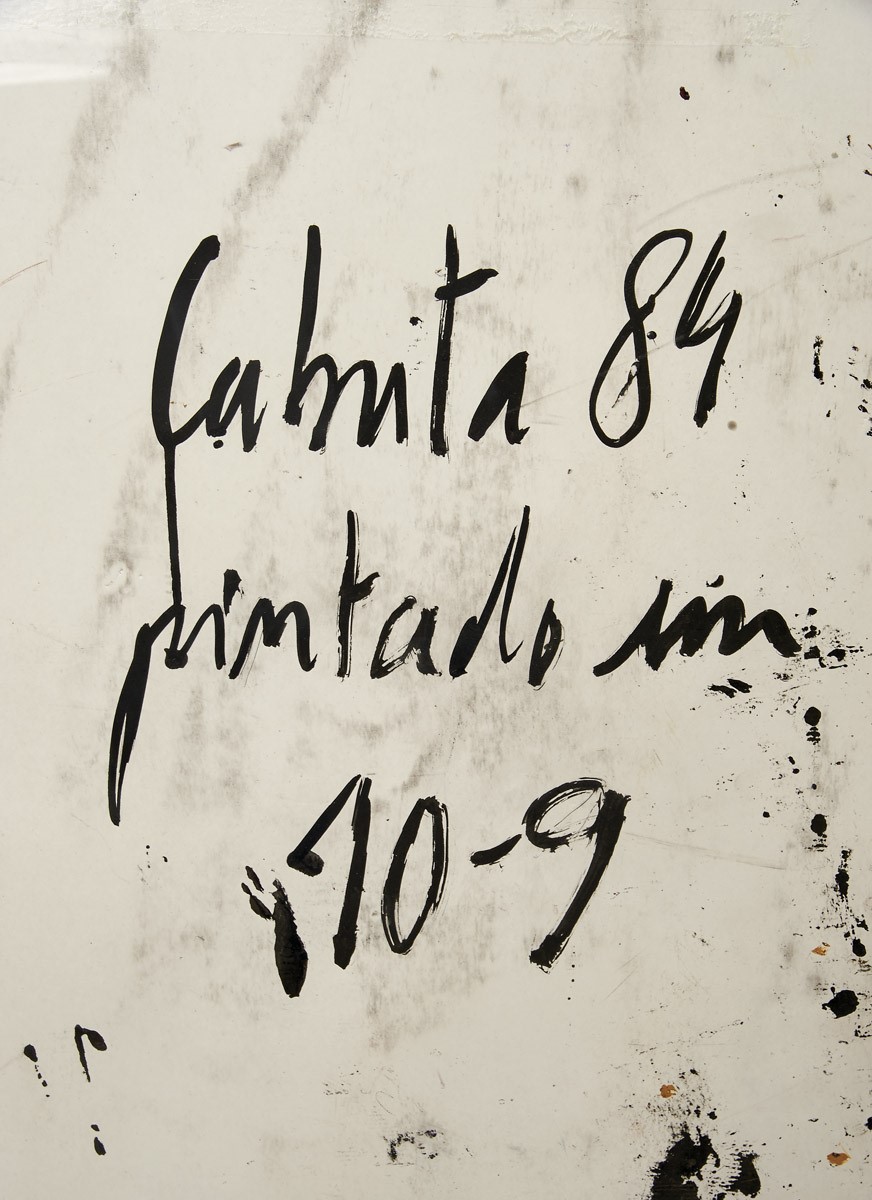 Cabrita 84
pintado em
10-9